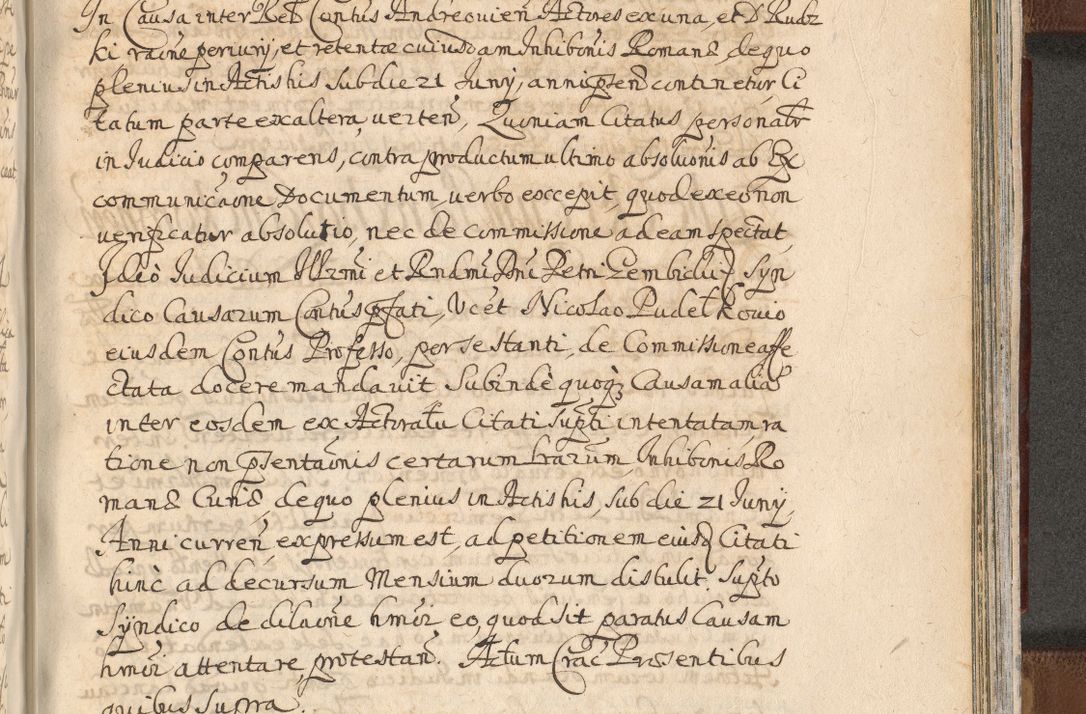 In Causa inter Reb Contus Andreouien Actores ex una, et D Rudz
ki raõne periurij, et retentæ cuiusdam Inhibonis Romanæ, de quo
plenius in Actis his sub die 21 Iunij, anni pñtis continetur, Ci
tatum parte ex altera uerten, Quoniam Citatus personalr
in Iudicio comparens, contra productum ultimo absoluonis ab Ex
communicaõne Documentum, uerbo excepit, quod ex eo non
uerificatur absolutio, nec de commissione ad eam spectat,
Ideò Iudicium Illrmi et Rndmi Dni Petri Gembickij, Syn
dico Causarum Contus pfati, Vcet Nicolao Pudelkouio
eiusdem Contus Professo, perse stanti, de Commissione affe
ctata docere mandauit. Subindè quoqz Causam alia
inter eosdem ex Actoratu Citati supti intentatam ra
tione non psentaõnis certarum lrarum Inhibonis Ro
manæ Curiæ, de quo plenius in Actis his, sub die 21 Iunij,
Anni curren, expressum est, ad petitionem eiusd Citati
hinc ad decursum Mensium duorum distulit, Supto
Syndico de dilaõne hmõi eo, quod sit paratus Causam
hmõi attentare, protestan. Actum Crac Præsentibus
quibus supra.